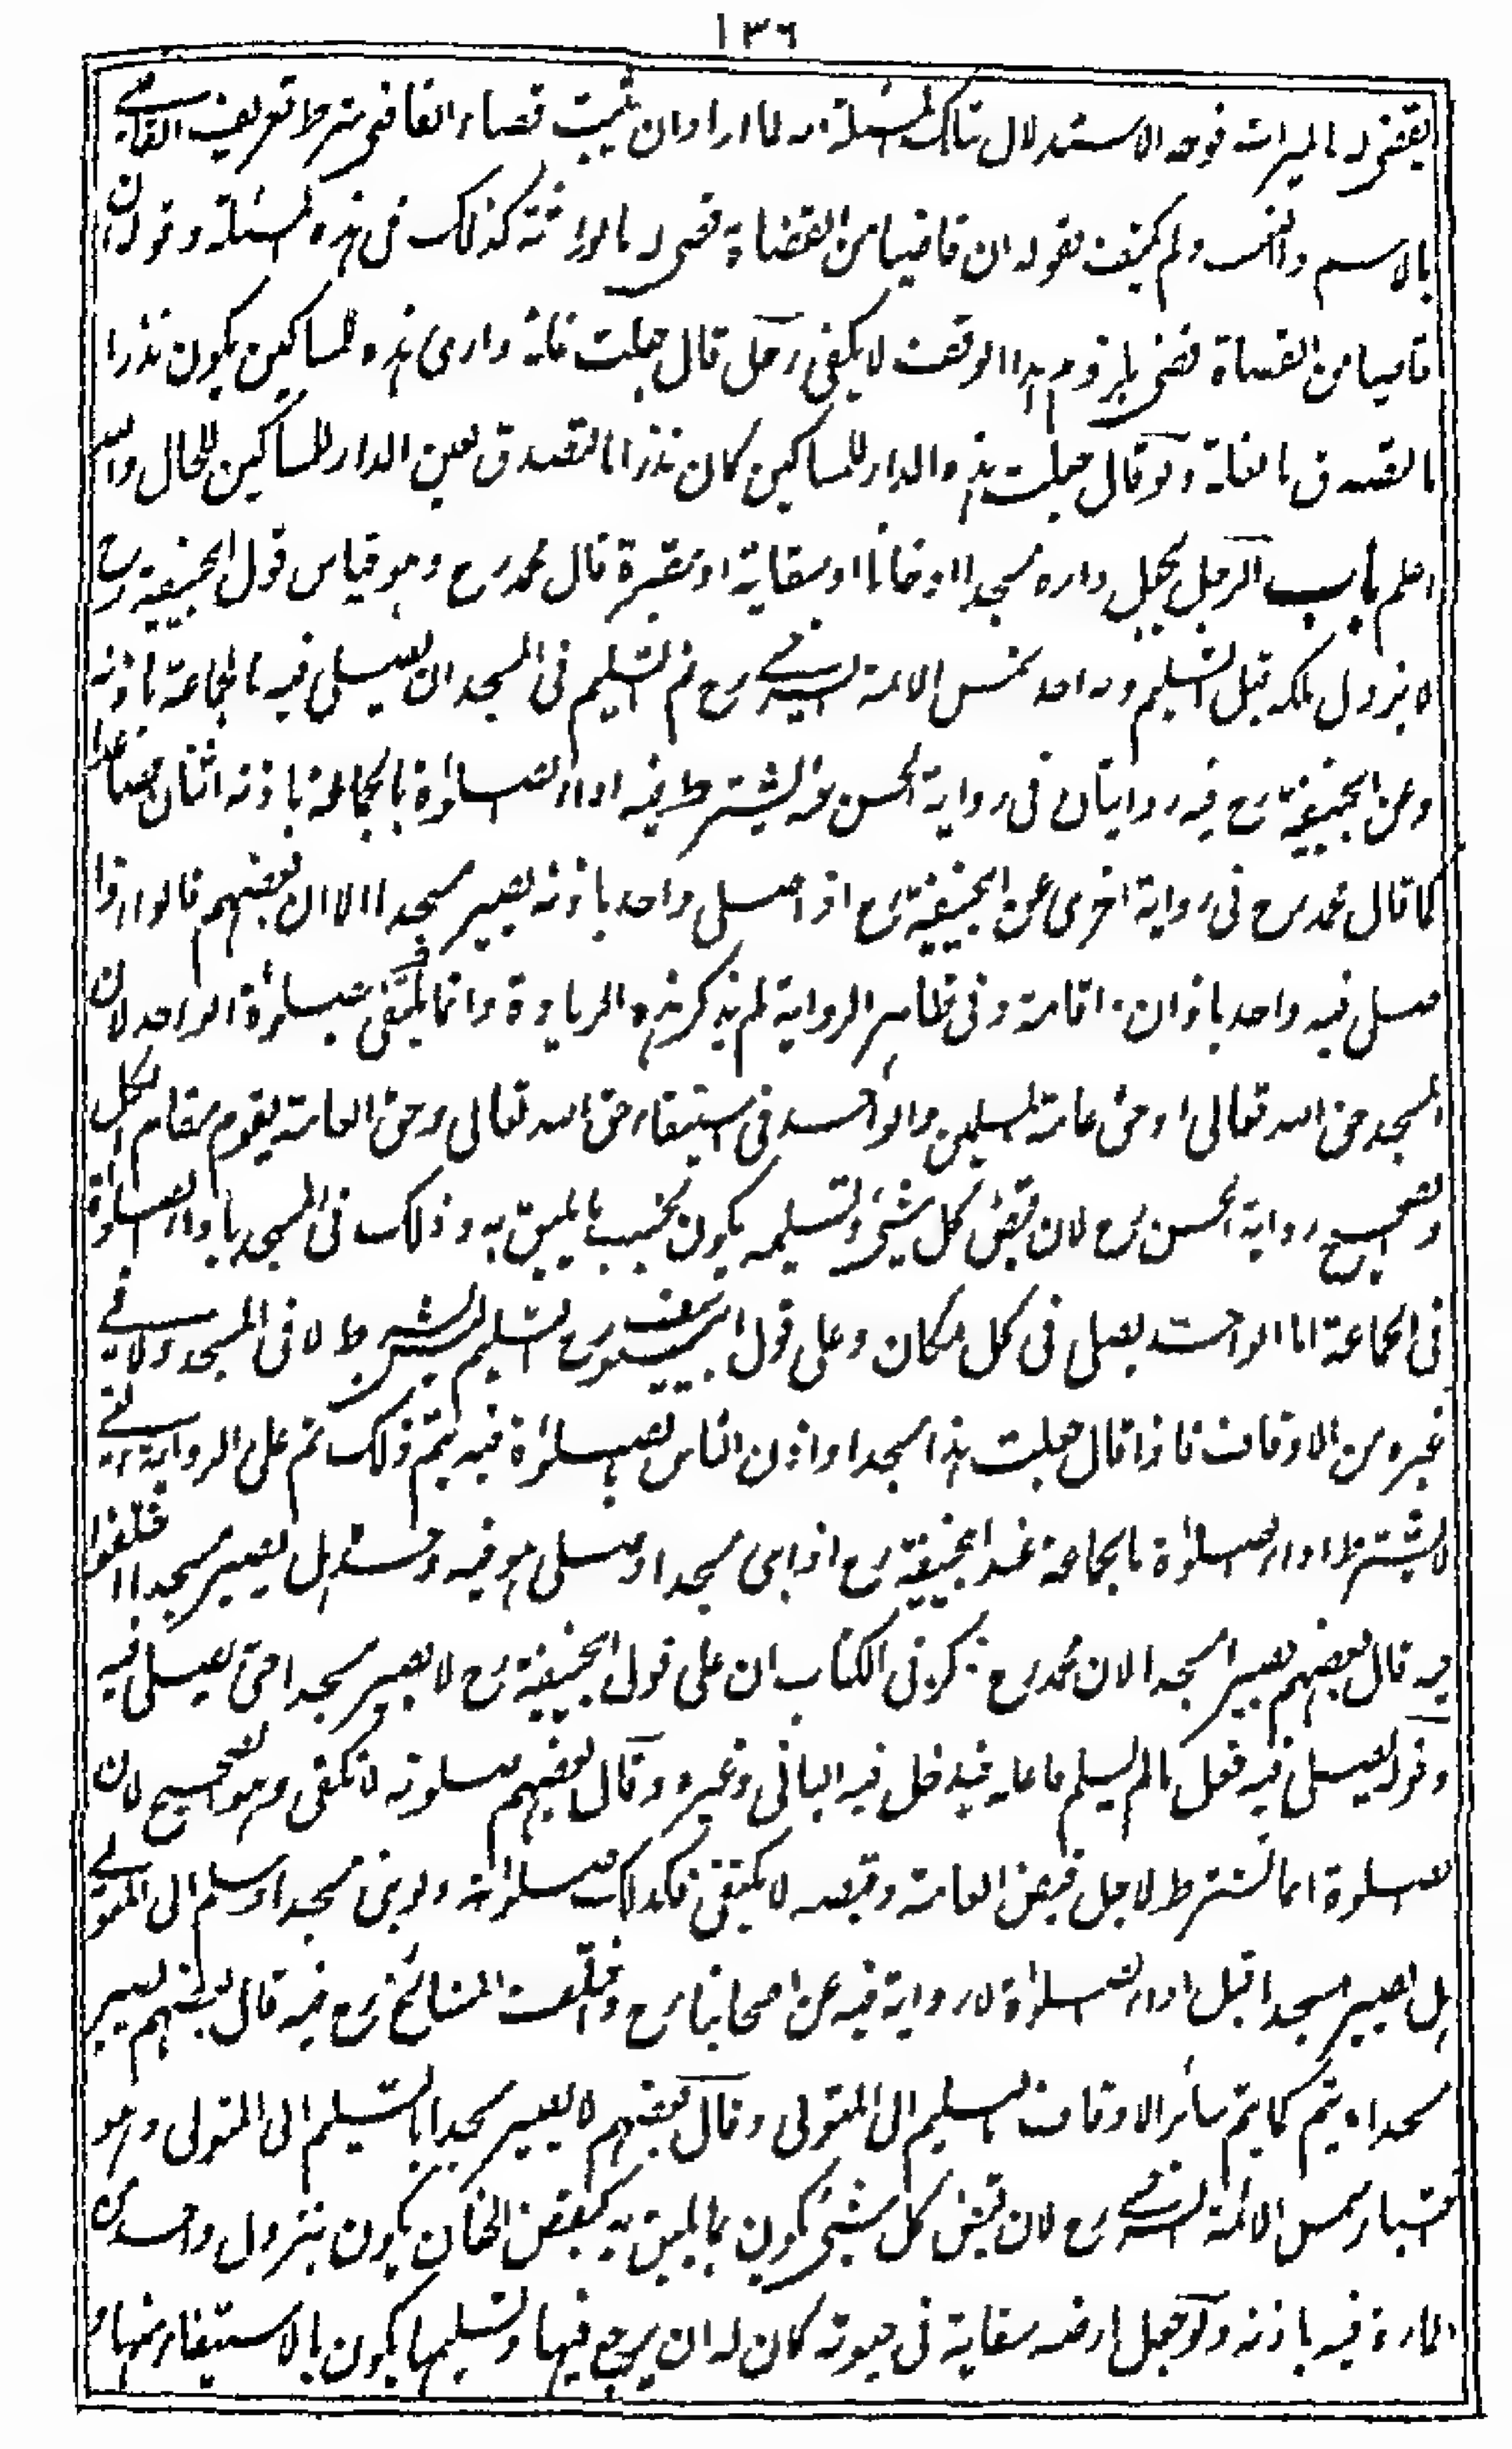 ١٣٦
يقضى له بالميراث فوجه الاستدلال بتلك المسئلة انه لما اراد ان يثبت قضاء القاضى شرط تعريف القاضى
بالاسم والنسب ولم يكتف بقوله ان قاضيا من القضاة قضى له بالوراثة كذلك فى هذه المسئلة وقوله ان
قاضيا من القضاة قضى بلزوم هذا الوقف لا يكفى رجل قال جعلت غلة دارى هذه للمساكين يكون نذرا
بالتصدق بالغلة ولو قال جعلت هذه الدار للمساكين كان نذرا بالتصدق بعين الدار للمساكين للحال والله
اعلم باب الرجل يجعل داره مسجدا او خانا او سقاية او مقبرة قال محمد رح وهو قياس قول ابيحنيفة رح
لا يزول ملكه قبل التسليم وبه اخذ شمس الائمة السرخسى رح ثم التسليم فى المسجد ان يصلى فيه بالجماعة باذنه
وعن ابيحنيفة رح فيه روايتان فى رواية الحسن عنه يشترط فيه اداء الصلوة بالجماعة باذنه اثنان فصاعدا
كما قال محمد رح فى رواية اخرى عن ابيحنيفة رح اذا صلى واحد باذنه يصير مسجدا الا ان بعضهم قالوا اذا
صلى فيه واحد باذان واقامة وفى ظاهر الرواية لم يذكر هذه الزيادة وانما يكتفى بصلوة الواحد لان
المسجد حق الله تعالى او حق عامة المسلمين والواحد فى استيفاء حق الله تعالى وحق العامة يقوم مقام الكل
والصحيح رواية الحسن رح لان قبض كل شىء وتسليمه يكون بحسب ما يليق به وذلك فى المسجد باداء الصلوة
فى الجماعة اما الواحد يصلى فى كل مكان وعلى قول ابى يوسف رح التسليم ليس بشرط لا فى المسجد ولا فى
غيره من الاوقاف فاذا قال جعلت هذا مسجدا واذن للناس بالصلوة فيه يتم ذلك ثم على الرواية التى
لا يشترط اداء الصلوة بالجماعة عند ابيحنيفة رح اذا بنى مسجدا وصلى هو فيه وحده هل يصير مسجدا اختلفوا
فيه قال بعضهم يصير مسجدا لان محمد رح ذكر فى الكتاب ان على قول ابيحنيفة رح لا يصير مسجدا حتى يصلى فيه
وقوله يصلى فيه فعل ما لم يسلم فاعله فيدخل فيه البانى وغيره وقال بعضهم صلوته لا تكفى وهو الصحيح لان
الصلوة انما تشترط لاجل قبض العامة وقبضه لا يكتفى فكذلك صلوته ولو بنى مسجدا وسلم الى المتولى
هل يصير مسجدا قبل اداء الصلوة لا رواية فيه عن اصحابنا رح واختلف المشائخ رح فيه قال بعضهم يصير
مسجدا ويتم كما يتم سائر الاوقاف بالتسليم الى المتولى وقال بعضهم لا يصير مسجدا بالتسليم الى المتولى وهو
اختيار شمس الائمة السرخسى رح لان قبض كل شىء يكون بما يليق به كقبض الخان يكون بنزول واحد من
المارة فيه باذنه ولو جعل ارضه سقاية فى حيوته كان له ان يرجع فيها وتسليمها يكون بالاستيفاء منها